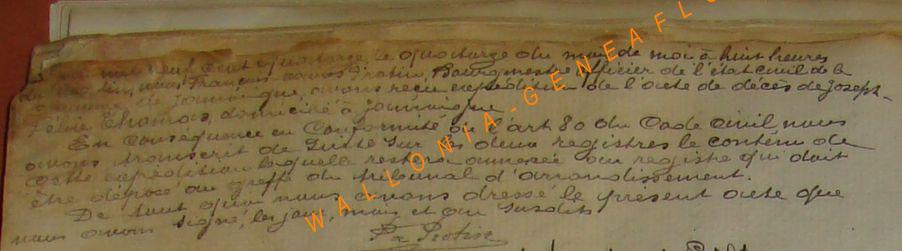 mil neuf cent quatorze le quatorze du mois de mai à huit heures
du matin, nous François Protin, Bourgmestre officier de l'état civil de la
commune de Jamoigne, avons reçu expédition de l'acte de décès de Joseph-
Thomas, domicilié à Jamoigne
En conséquence en conformité de l'art 80 du Code Civil nous
avons transcrit de suite sur les deux registres le contenu de
cette expédition laquelle restera annexée au registre qui doit
être déposé au greffe du tribunal d'arrondissement.
De tout quoi nous avons dressé le présent acte que
nous avons signé, les jour, mois et an susdits
Protin
WALLONIA-GENEAFLO